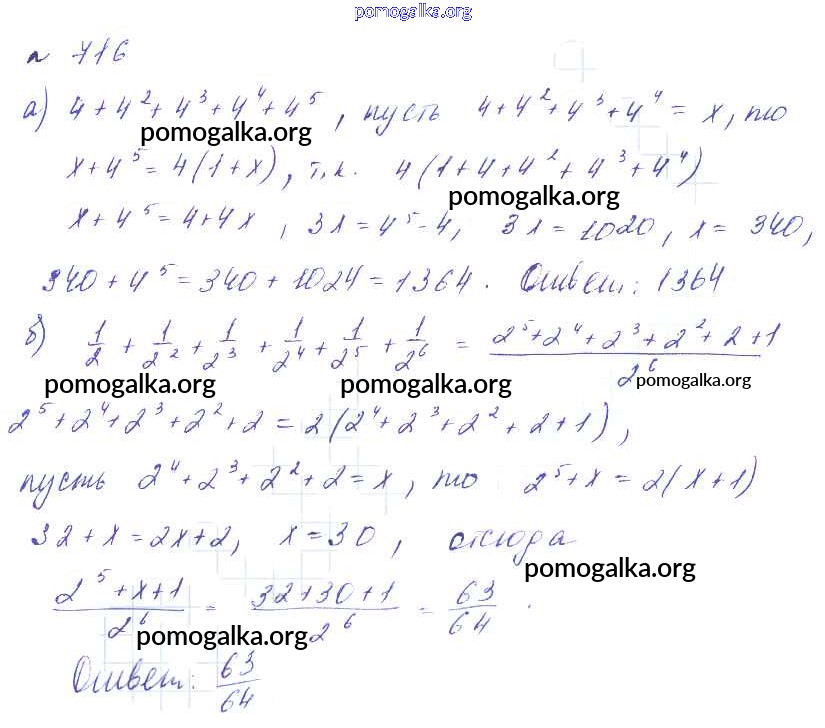 pomogalka.org
№ 716
а) 4 + 4² + 4³ + 4⁴ + 4⁵, пусть 4 + 4² + 4³ + 4⁴ = x, то
pomogalka.org
x + 4⁵ = 4(1 + x), т.к. 4(1 + 4 + 4² + 4³ + 4⁴)
pomogalka.org
x + 4⁵ = 4 + 4x, 3x = 4⁵ - 4, 3x = 1020, x = 340,
340 + 4⁵ = 340 + 1024 = 1364. Ответ: 1364
б) 1/2 + 1/2² + 1/2³ + 1/2⁴ + 1/2⁵ + 1/2⁶ = (2⁵ + 2⁴ + 2³ + 2² + 2 + 1)/2⁶
pomogalka.org pomogalka.org pomogalka.org
2⁵ + 2⁴ + 2³ + 2² + 2 = 2(2⁴ + 2³ + 2² + 2 + 1),
пусть 2⁴ + 2³ + 2² + 2 = x, то 2⁵ + x = 2(x + 1)
32 + x = 2x + 2, x = 30, отсюда
pomogalka.org
(2⁵ + x + 1)/2⁶ = (32 + 30 + 1)/2⁶ = 63/64.
pomogalka.org
Ответ: 63/64